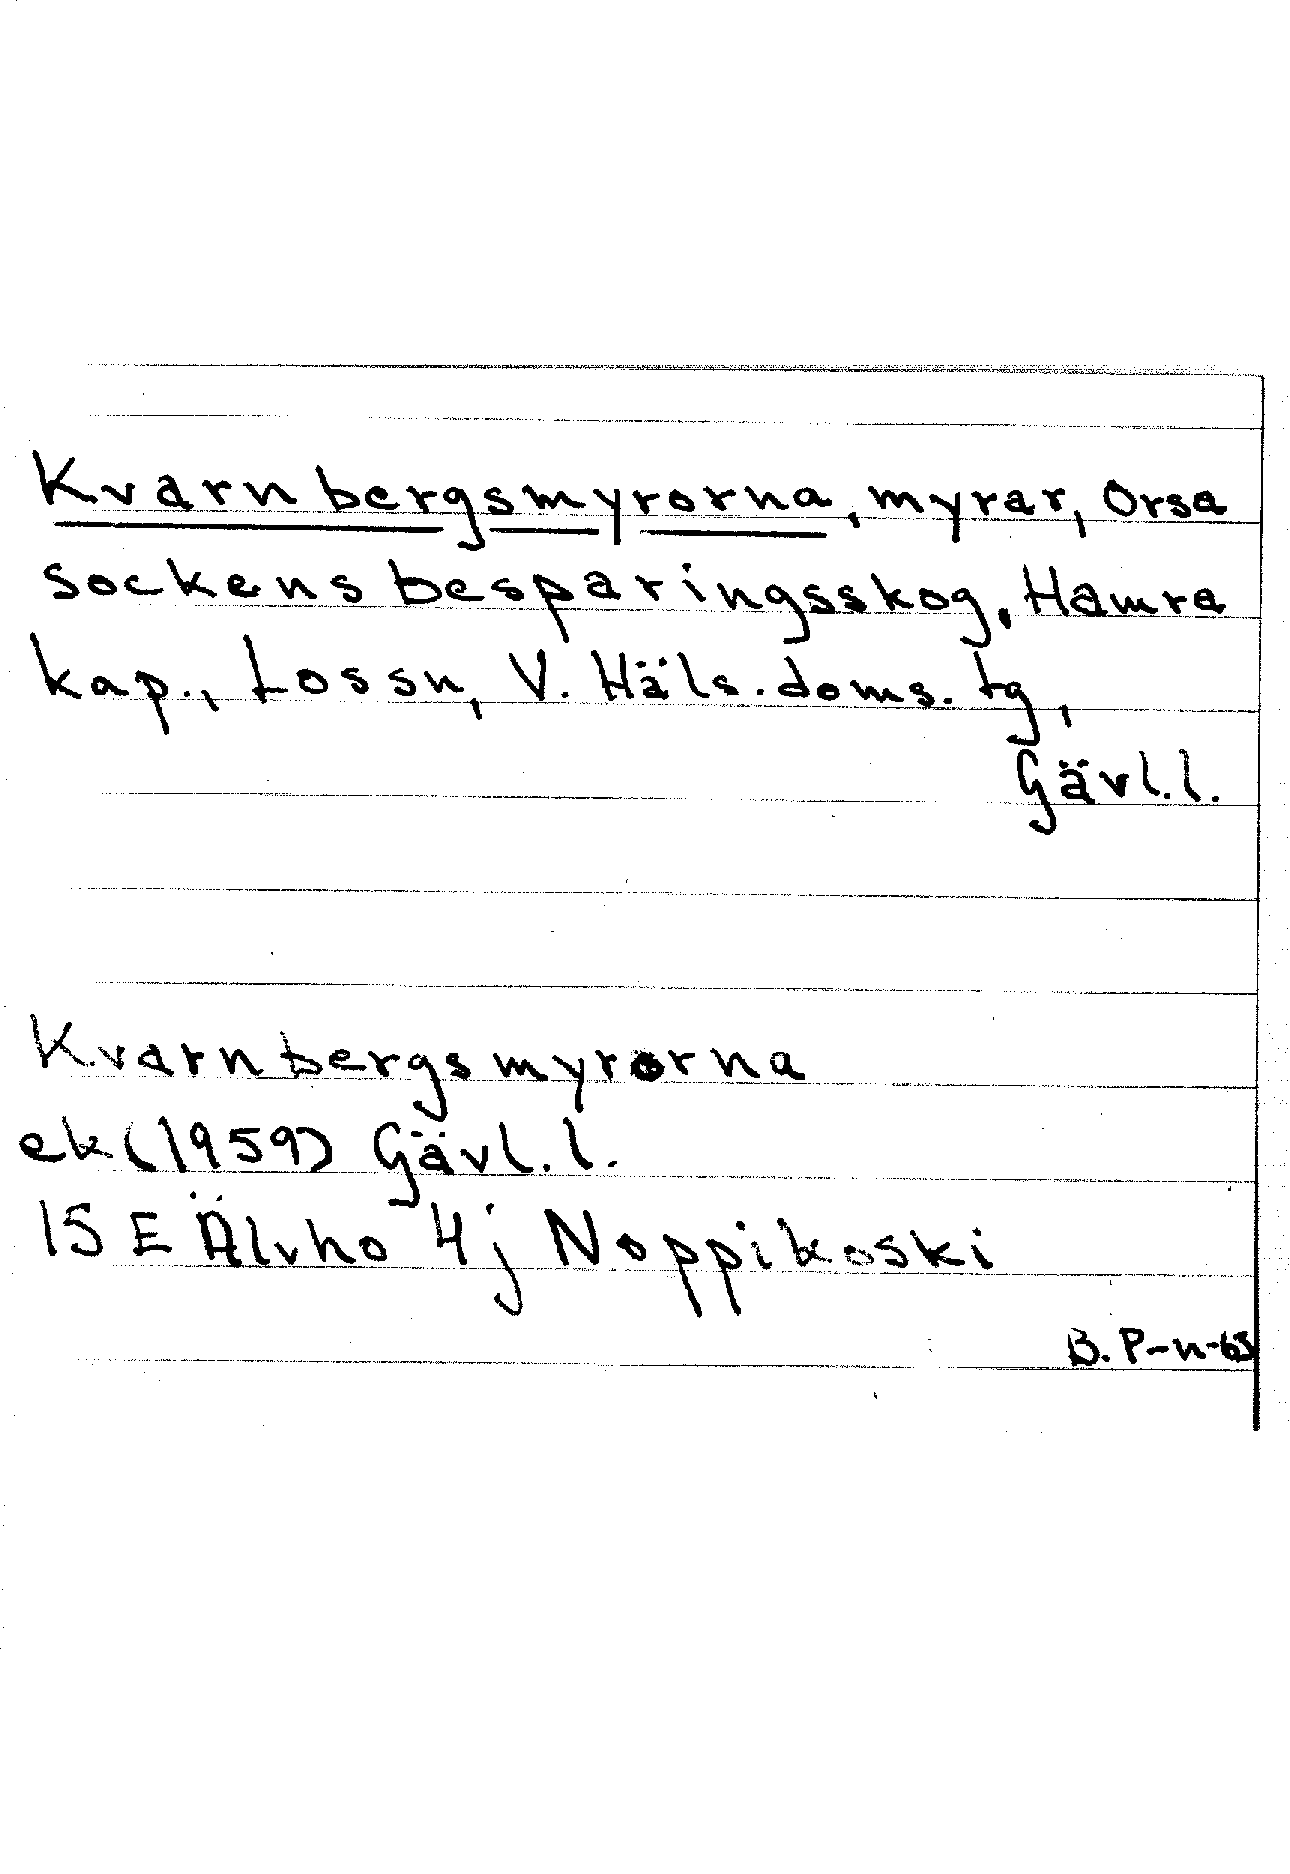 Kvarnbergsmyrorna, myrar, Orsa
sockens besparingsskog, Hamra
kap., Lossn, V. Häls. doms. tg,
Gävl.l.
Kvarnbergsmyrorna
ek (1959) Gävl.l.
15 E Älvho 4j Noppikoski
B. P-n-63